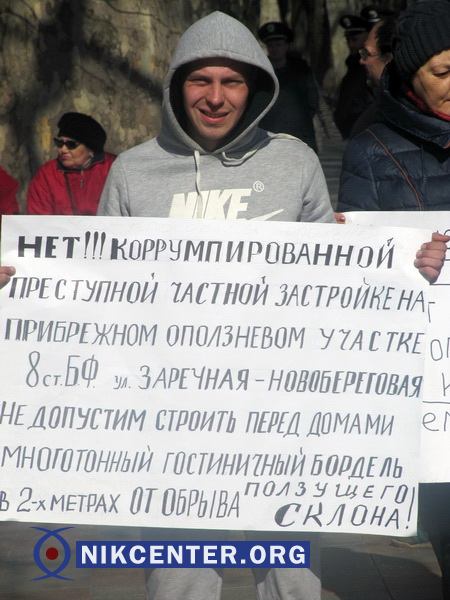 NIKE ®
НЕТ!!! КОРРУМПИРОВАННОЙ
ПРЕСТУПНОЙ ЧАСТНОЙ ЗАСТРОЙКЕ НА
ПРИБРЕЖНОМ ОПОЛЗНЕВОМ УЧАСТКЕ
8 ст. Б.Ф. ул. ЗАРЕЧНАЯ - НОВОБЕРЕГОВАЯ
НЕ ДОПУСТИМ СТРОИТЬ ПЕРЕД ДОМАМИ
МНОГОТОННЫЙ ГОСТИНИЧНЫЙ БОРДЕЛЬ
В 2-х МЕТРАХ ОТ ОБРЫВА ПОЛЗУЩЕГО
СКЛОНА!
NIKCENTER.ORG